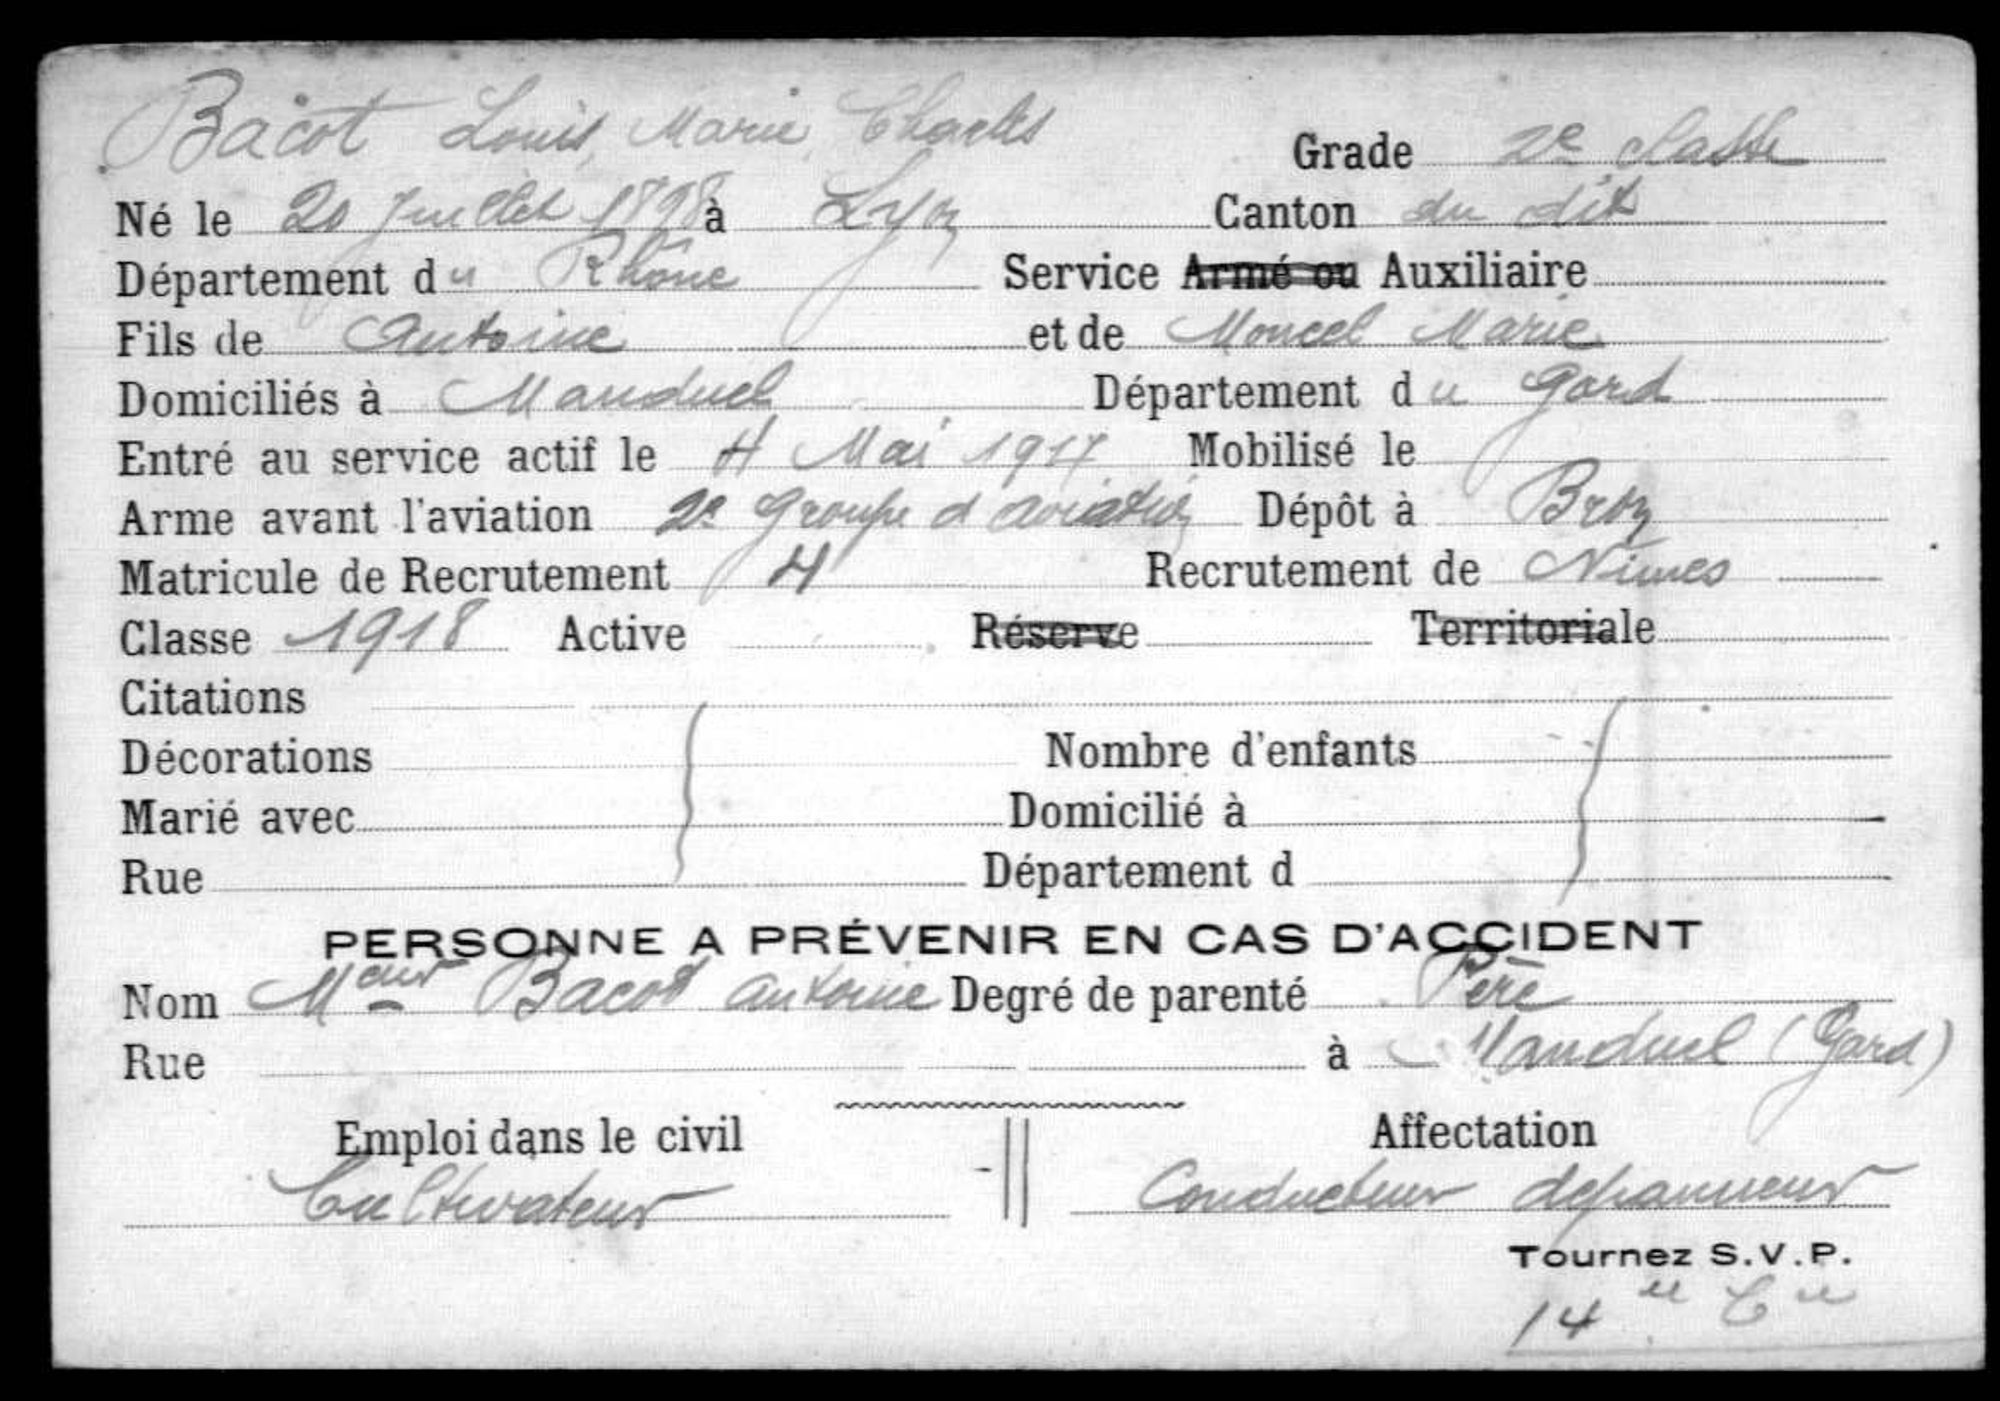 Bacot Louis, Marie, Charles
Grade 2e classe
Né le 20 Juillet 1898 à Lyon Canton du dit
Département du Rhône Service Armé ou Auxiliaire
Fils de Antoine et de Moncel Marie
Domiciliés à Manduel Département du Gard
Entré au service actif le 4 Mai 1917 Mobilisé le
Arme avant l'aviation 2e Groupe d'aviation Dépôt à Bron
Matricule de Recrutement 4 Recrutement de Nimes
Classe 1918 Active Réserve Territoriale
Citations
Décorations Nombre d'enfants
Marié avec Domicilié à
Rue Département d
PERSONNE A PRÉVENIR EN CAS D'ACCIDENT
Nom Bacot Antoine Degré de parenté Père
Rue à Manduel (Gard)
Emploi dans le civil Affectation
Cultivateur Conducteur dépanneur
Tournez S.V.P.
14e Cie